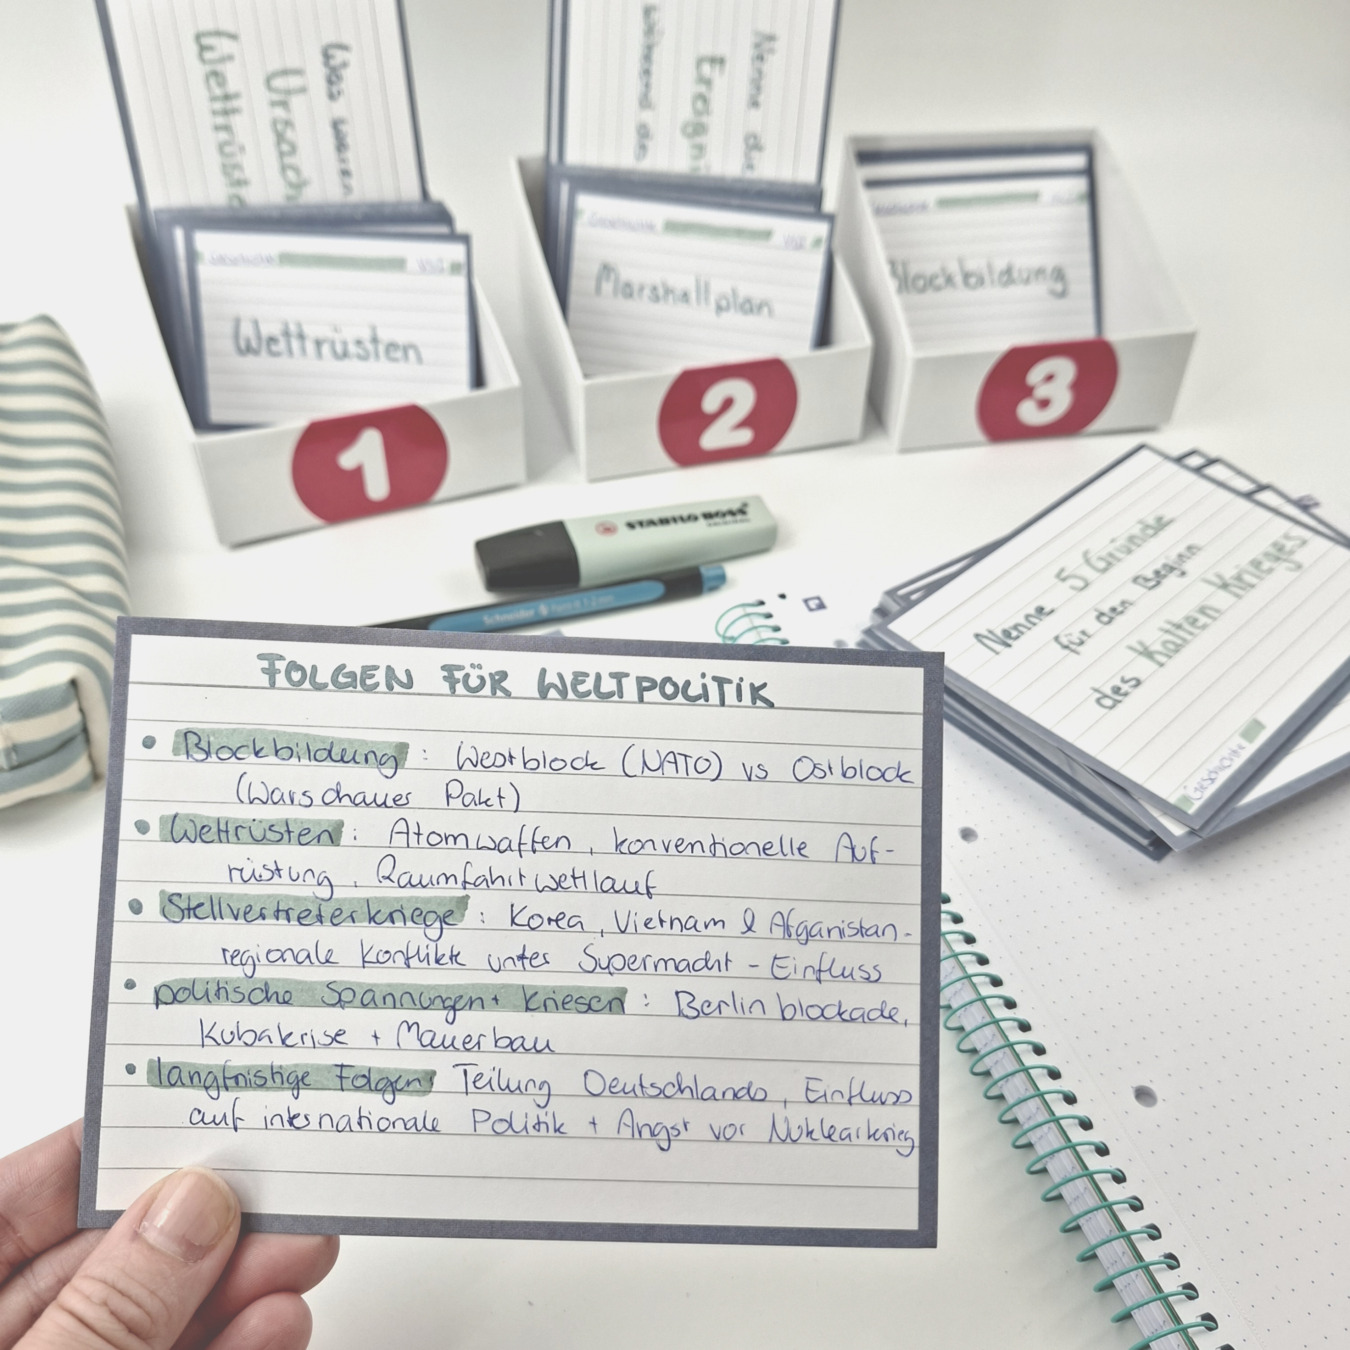 Was waren
Ursach
Wettrüste
Nenne die
Ereigni
während de
Geschichte
Wettrüsten
1
Geschichte
Marshallplan
2
Blockbildung
3
STABILO BOSS
ORIGINAL
Schneider
Nenne 5 Gründe
für den Beginn
des Kalten Krieges
Geschichte
FOLGEN FÜR WELTPOLITIK
• Blockbildung : Westblock (NATO) vs Ostblock
(Warschauer Pakt)
• Wettrüsten : Atomwaffen, konventionelle Auf-
rüstung, Raumfahrtwettlauf
• Stellvertreterkriege : Korea, Vietnam & Afganistan -
regionale Konflikte unter Supermacht - Einfluss
• politische Spannungen + Kriesen : Berlinblockade,
Kubakrise + Mauerbau
• langfristige Folgen: Teilung Deutschlands, Einfluss
auf internationale Politik + Angst vor Nuklearkrieg